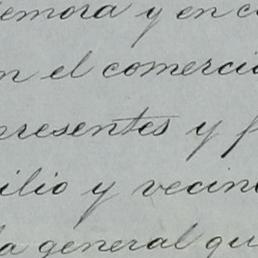 demora y en c
n el comercio
presentes y f
ilio y vecin
la general qu